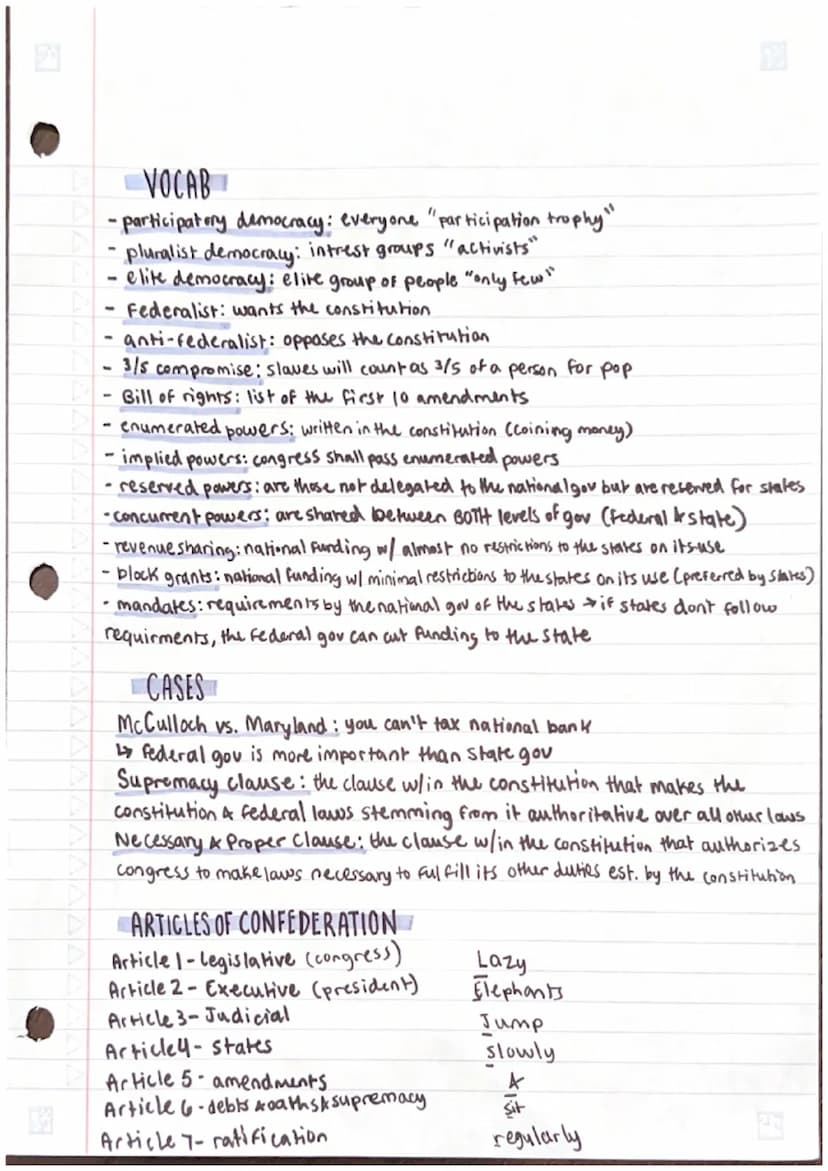 VOCAB
- participatory democracy: everyone "participation trophy"
- pluralist democracy: intrest groups "activists"
- elite democracy: elite group of people "only few"
- Federalist: wants the constitution
- anti-federalist: opposes the constitution
- 3/5 compromise: slaves will count as 3/5 of a person for pop
- Bill of rights: list of the first 10 amendments
- enumerated powers: written in the constitution (coining money)
- implied powers: congress shall pass enumerated powers
- reserved powers: are those not delegated to the national gov but are reserved for states
- concurrent powers: are shared between BOTH levels of gov (federal & state)
- revenue sharing: national funding w/ almost no restrictions to the states on its use
- block grants: national funding w/ minimal restrictions to the states on its use (preferred by states)
- mandates: requirements by the national gov of the states → if states dont follow
requirments, the federal gov can cut funding to the state
CASES
McCulloch vs. Maryland: you can't tax national bank
↳ federal gov is more important than state gov
Supremacy clause: the clause w/in the constitution that makes the
constitution & federal laws stemming from it authoritative over all other laws
Necessary & Proper Clause: the clause w/in the constitution that authorizes
congress to make laws necessary to fulfill its other duties est. by the constitution
ARTICLES OF CONFEDERATION
Article 1 - legislative (congress) Lazy
Article 2 - Executive (president) Elephants
Article 3 - Judicial Jump
Article 4 - states slowly
Article 5 - amendments &
Article 6 - debts & oaths & supremacy sit
Article 7 - ratification regularly